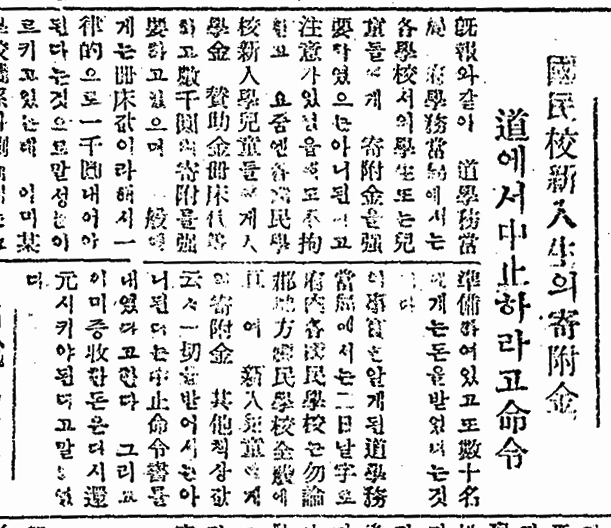 國民校新入生의寄附金
道에서中止하라고命令
旣報와같이 道學務當
局 府學務當局에서는
各學校서의學生또는兒
童들에게 寄附金을强
要하였으는아니된다고
注意가있었음에도不拘
하고 요즘에各國民學
校新入學兒童들에게入
學金 贊助金冊床代等
하고數千圓의寄附를强
要하고있으며 一般에
게는冊床값이라해서一
律的으로一千圓내어야
된다는것으로말성들이
르키고있는데 이미某
準備하여있고또數十名
에게는돈을받었다는것
이다
이事實을알게된道學務
當局에서는二日날字로
府內各國民學校는勿論
郡地方國民學校全般에
亘하여 新入兒童에게
의寄附金 其他책상값
云々一切을받어서는아
니된다는中止命令書를
내였다고한다 그리고
이미증收한돈은다시還
元시키야된다고말하였
다